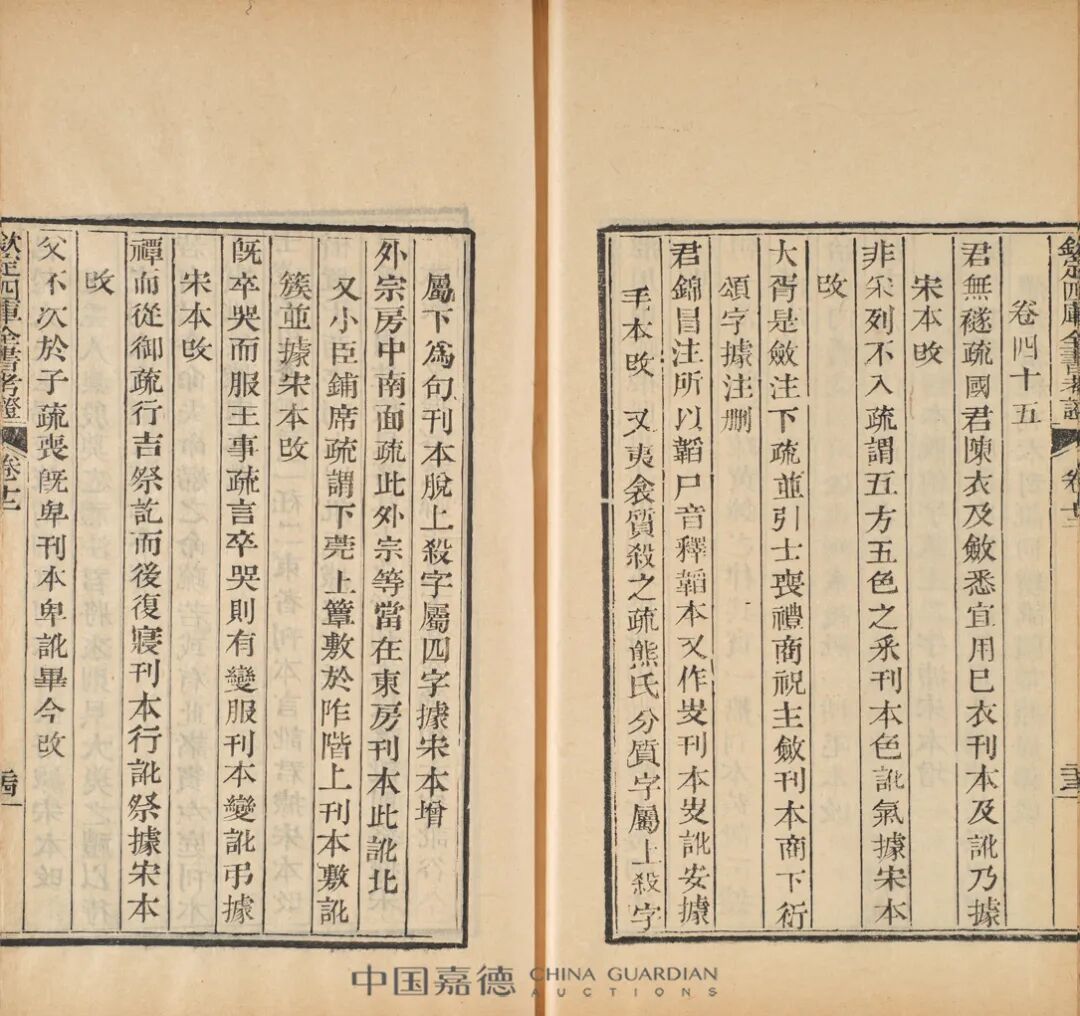 欽定四庫全書考證
卷四十五
君無襚疏國君陳衣及斂悉宜用巳衣刊本及訛乃據
宋本改
非采列不入疏謂五方五色之采刊本色訛氣據宋本
改
大胥是斂注下疏並引士喪禮商祝主斂刊本商下衍
頌字據注删
君錦冒注所以韜尸音釋韜本又作㚇刊本㚇訛安據
毛本改 又夷衾質殺之疏熊氏分質字屬上殺字
屬下爲句刊本脫上殺字屬四字據宋本增
外宗房中南面疏此外宗等當在東房刊本此訛北
又小臣鋪席疏謂下莞上簟敷於阼階上刊本敷訛
簇並據宋本改
旣卒哭而服王事疏言卒哭則有變服刊本變訛弔據
宋本改
禫而從御疏行吉祭訖而後復寢刊本行訛祭據宋本
改
父不次於子疏喪旣卑刊本卑訛畢今改
欽定四庫全書考證
中国嘉德 CHINA GUARDIAN
AUCTIONS